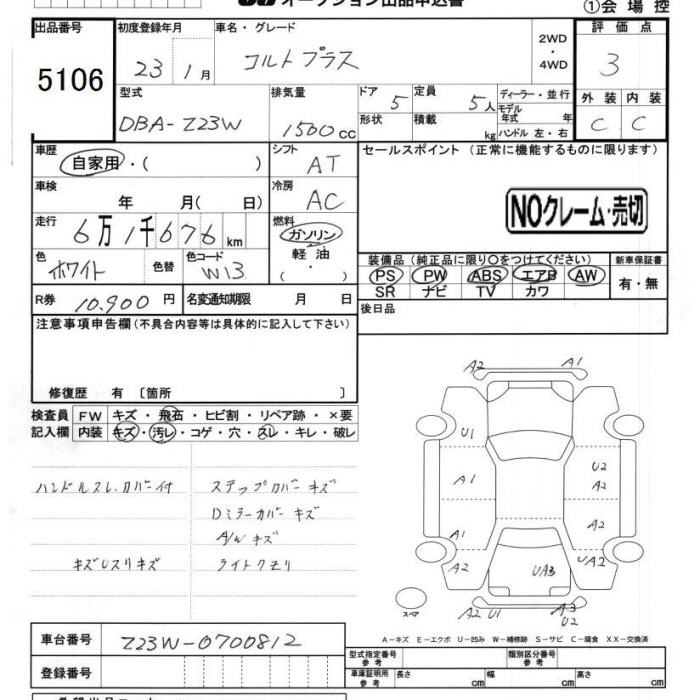 オークション出品申込書
①会場控
出品番号
5106
初度登録年月
23 1月
車名・グレード
コルトプラス
2WD
・
4WD
評価点
3
型式
DBA-Z23W
排気量
1500cc
ドア
5
定員
5人
ディーラー・並行
モデル年式 年
形状
積載 kg
ハンドル 左・右
外装 内装
C C
車歴
自家用・( )
シフト
AT
セールスポイント (正常に機能するものに限ります)
車検
年 月( 日)
冷房
AC
NOクレーム・売切
走行
6万1千676km
燃料
ガソリン
軽油
( ・ )
色
ホワイト
色替
色コード
W13
装備品 (純正品に限り○をつけてください)
PS PW ABS エアB AW
SR ナビ TV カワ
新車保証書
有・無
R券 10,900円
名変通知期限 月 日
後日品
注意事項申告欄 (不具合内容等は具体的に記入して下さい)
修復歴 有 〔箇所 〕
検査員
記入欄
FW キズ・飛石・ヒビ割・リペア跡・×要
内装 キズ・汚レ・コゲ・穴・スレ・キレ・破レ
ハンドルスレ、カバー付
ステップカバー キズ
Dミラーカバー キズ
A/W キズ
キズUスリキズ
ライトクモリ
A2 A1
U1
U2
A2
A1
A1 A2
A2 UA3 UA2
スペア
A2 U1 A3
U2
A-キズ E-エクボ U-凹み W-補修跡 S-サビ C-腐食 XX-交換済
車台番号
Z23W-0700812
登録番号
型式指定番号
参考
類別区分番号
参考
車庫証明用
参考
長さ cm 幅 cm 高さ cm